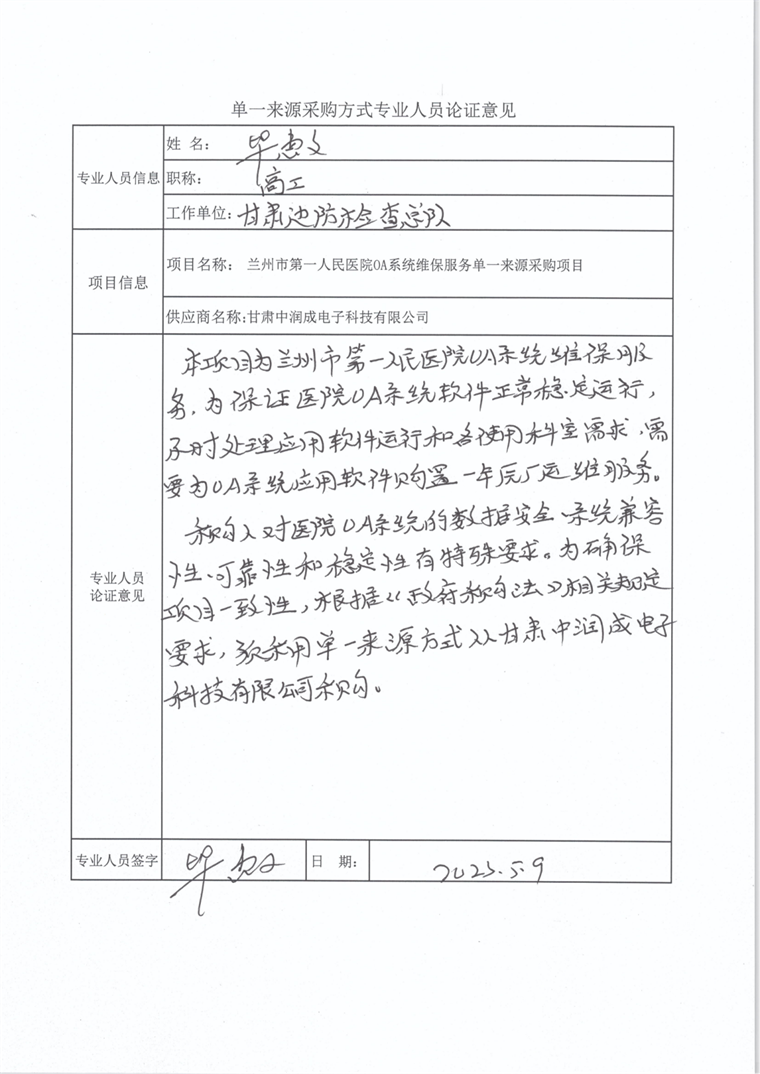 单一来源采购方式专业人员论证意见
专业人员信息
姓 名: 毕惠文
职称: 高工
工作单位: 甘肃边防检查总队
项目信息
项目名称: 兰州市第一人民医院OA系统维保服务单一来源采购项目
供应商名称:甘肃中润成电子科技有限公司
专业人员
论证意见
本项目为兰州市第一人民医院OA系统维保服
务,为保证医院OA系统软件正常稳定运行,
及时处理应用软件运行和各使用科室需求,需
要为OA系统应用软件购置一年原厂运维服务。
采购人对医院OA系统的数据安全、系统兼容
性、可靠性和稳定性有特殊要求。为确保
项目一致性,根据《政府采购法》相关规定
要求,须采用单一来源方式从甘肃中润成电子
科技有限公司采购。
专业人员签字 毕惠文 日 期: 2023.5.9